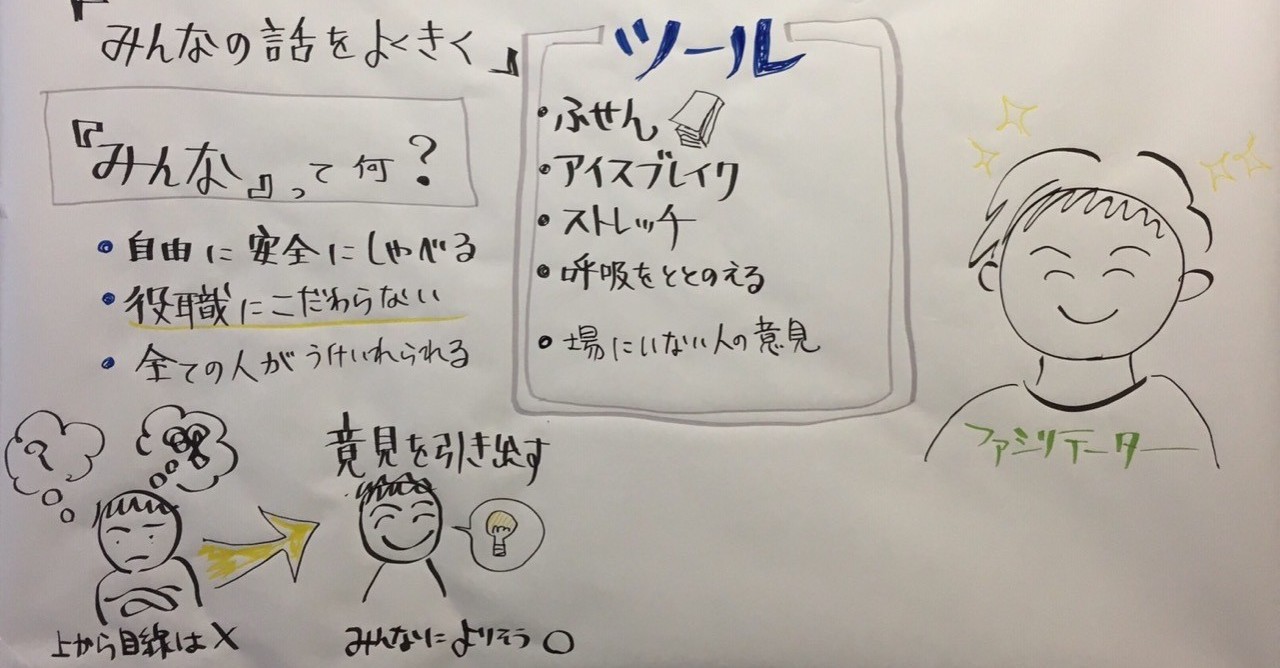 『みんなの話をよくきく』
『みんな』って何?
・自由に安全にしゃべる
・役職にこだわらない
・全ての人がうけいれられる
?
意見を引き出す
上から目線は×
みんなによりそう○
ツール
・ふせん
・アイスブレイク
・ストレッチ
・呼吸をととのえる
・場にいない人の意見
ファシリテーター